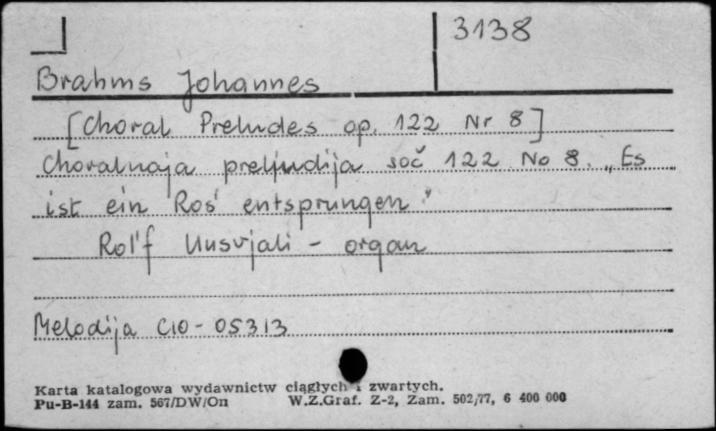 3138
Brahms Johannes
[Choral Preludes op. 122 Nr 8]
Choralnaja preljudija soč 122 No 8. „Es
ist ein Ros' entsprungen"
Rol'f Uusvjali - organ
Melodija C10-05313
Karta katalogowa wydawnictw ciągłych i zwartych.
Pu-B-144 zam. 567/DW/On W.Z.Graf. Z-2, Zam. 502/77, 6 400 000